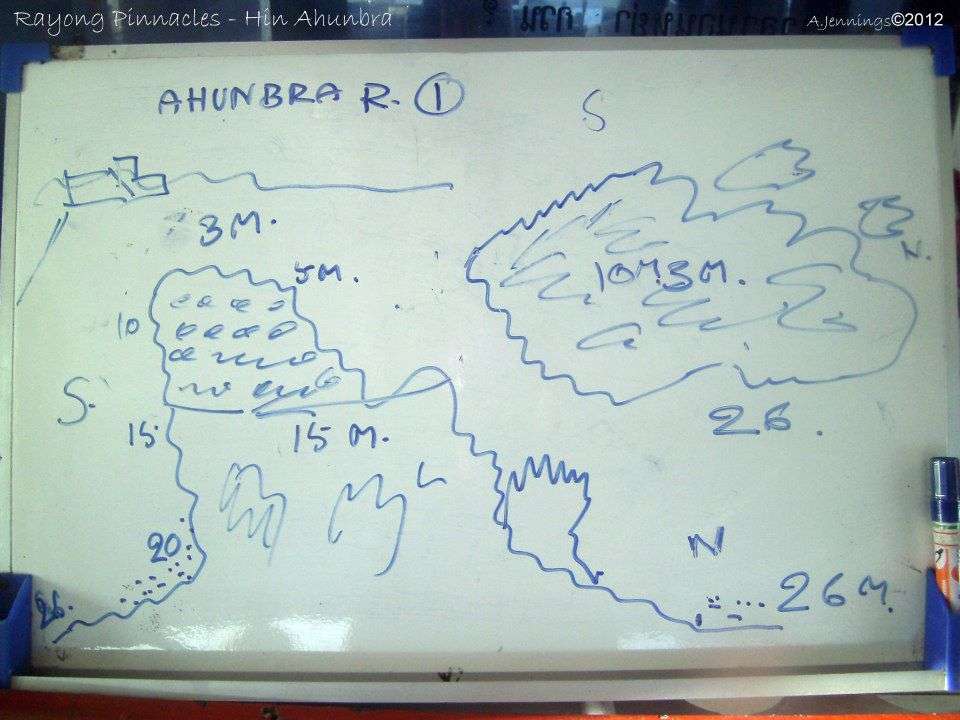 Rayong Pinnacles - Hin Ahunbra
A.Jennings©2012
AHUNBRA R. 1
S
3M.
5M.
10
S.
15
15 M.
20
26.
3M.
26.
N
26M.